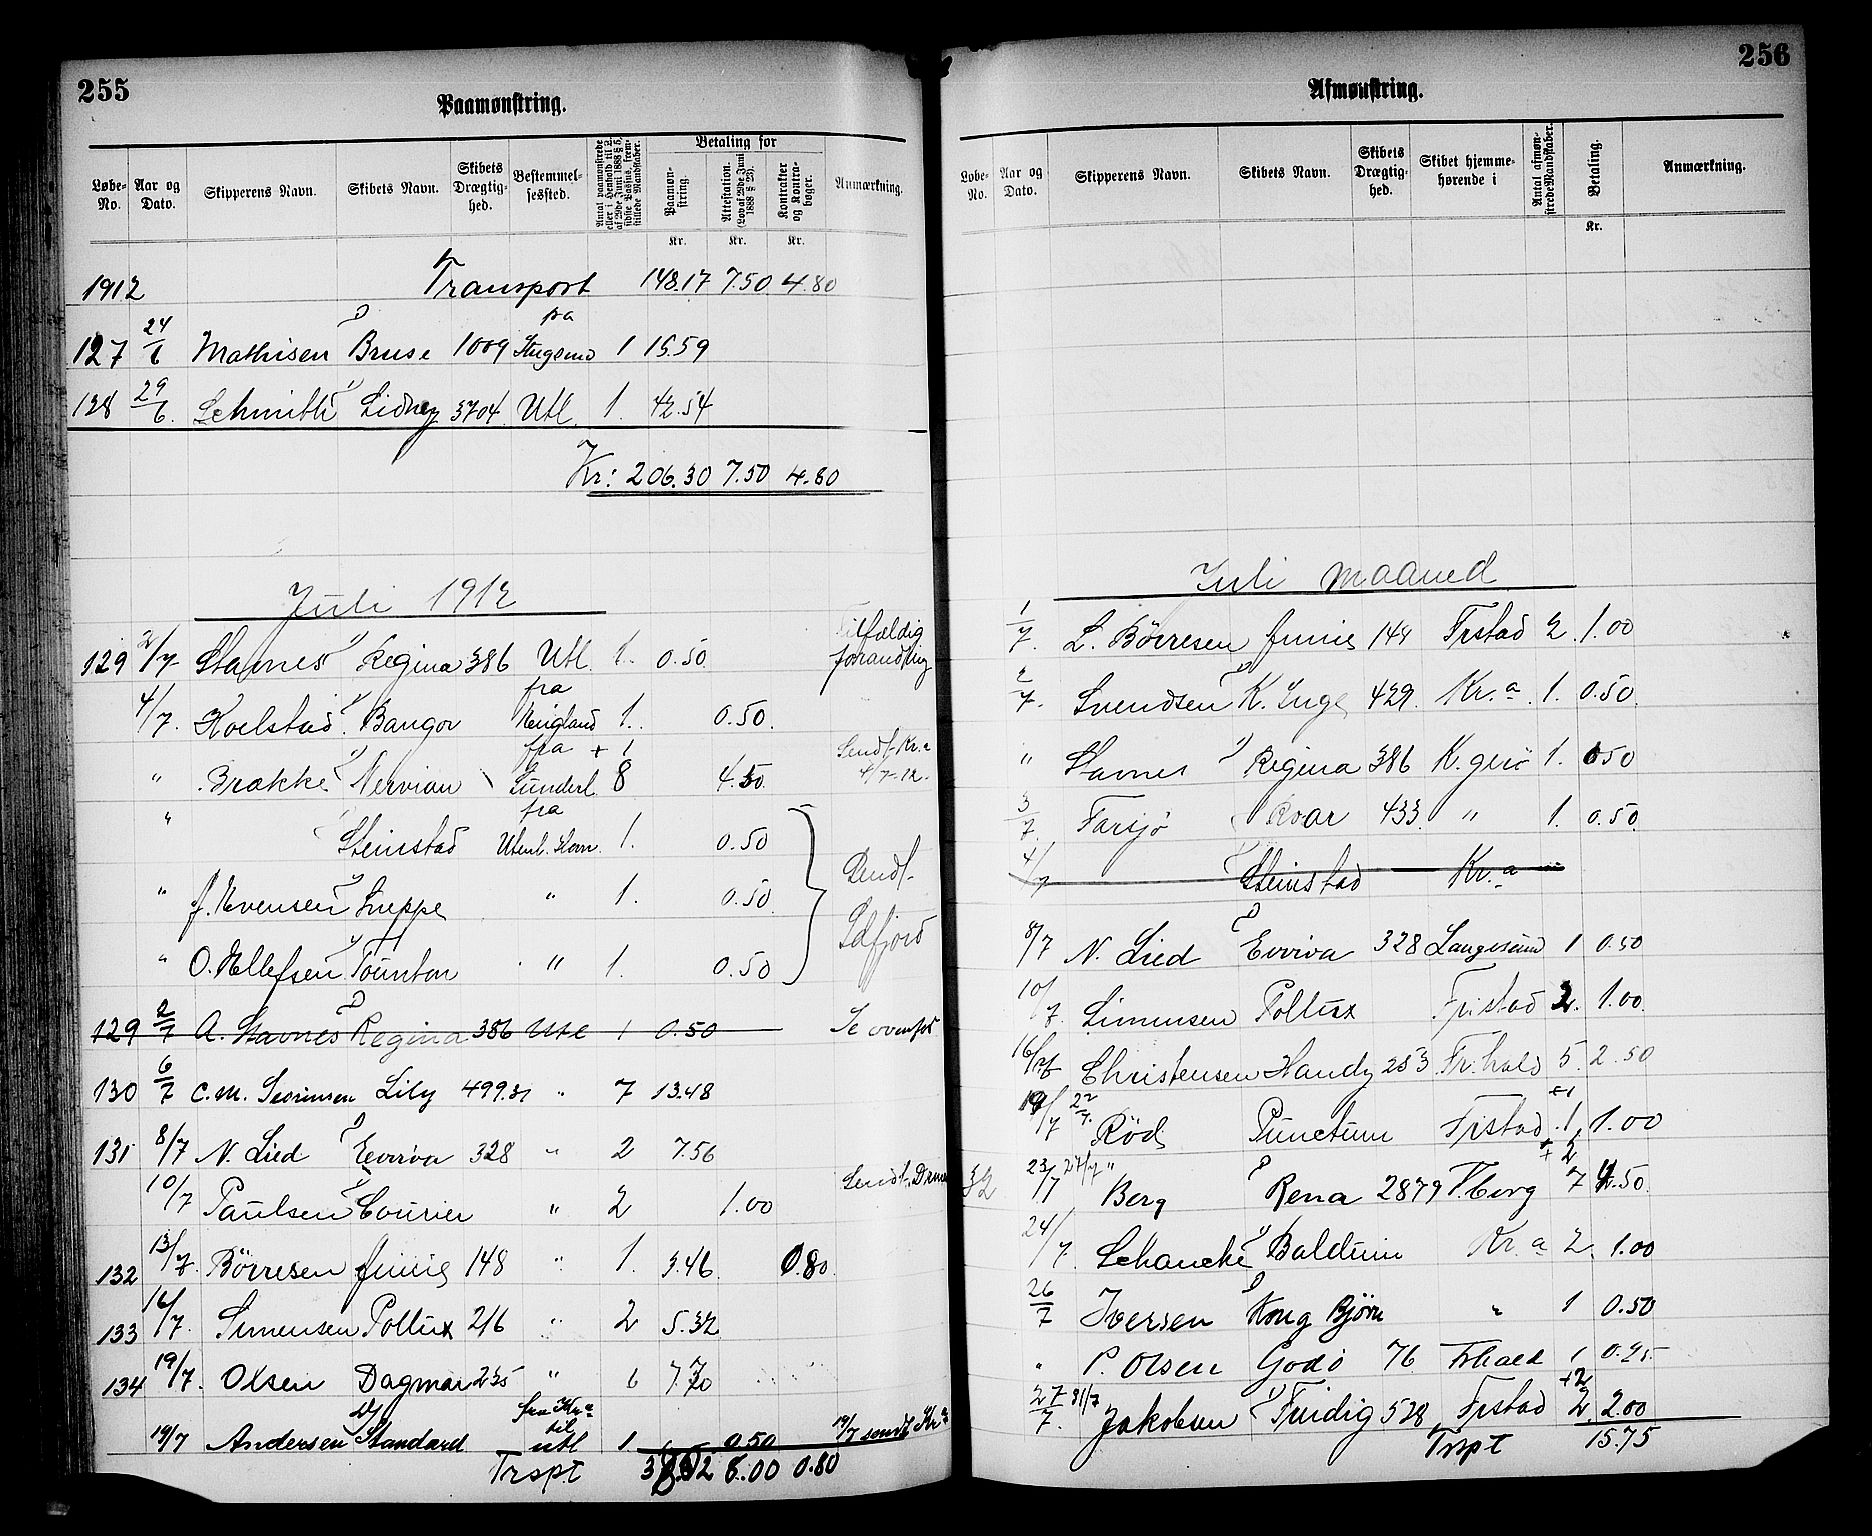 255
Paamønstring.
Løbe-No. Aar og Dato. Skipperens Navn. Skibets Navn. Skibets Drægtig-hed. Bestemmel-sessted. Betaling for Paamøn-string. Attestation. (Lov af 29de Juni 1888 § 23). Kontrakter og Kontra-bøger. Anmærkning.
Kr. Kr. Kr.
1912 Transport 148.17 7.50 4.80
fra
127 24/6 Mathisen D Bruse 1009 1 15.59
128 29/6. Schmith Sidney 3704 Utl. 1. 42.54
Kr: 206.30 7.50 4.80
Juli 1912
129 2/7 Stavnes Regina 386 Utl. 1. 0.50 Tilfældig forandring
fra
4/7. Koelstad Bangor England 1. 0.50.
fra + 1
" Brække Nervian Sunderl. 8 4.50 Sendt Kr.a 4/7-12.
fra
" Steinstad 1. 0.50
" J. Evensen Sneppe " 1. 0.50 Sendt
" O. Ellefsen Tounton " 1. 0.50 Idfjord
129 2/7 A. Stavnes Regina 386 Utl 1 0.50 Se ovenfor
130 6/7 C.M. Sørensen Lily 499.31 " 7 13.48
131 8/7 N. Lied Evviva 328 " 2 7.56
10/7 Paulsen Courier " 2 1.00 Sendt
132 13/7. Börresen 148 " 1. 3.46 0.80
133 16/7. Simensen Pollux 216 " 2 5.32
134 19/7. Olsen Dagmar 235 " 6 7.70
fra Kr.a til
19/7 Andersen Standard utl 1 0.50 19/7 sendt Kr.a
Trspt 6.00 0.80
256
Afmønstring.
Løbe-No. Aar og Dato. Skipperens Navn. Skibets Navn. Skibets Drægtig-hed. Skibet hjemme-hørende i Antal afmøn-strede Mandskaber. Betaling. Anmærkning.
Kr.
Juli Maaned
1/7. L. Börresen 144 Frstad 2. 1.00
2/7. Svendsen K. Inge 429. Kr.a 1. 0.50
" Stavnes Regina 386 K. 1. 0.50
3/7. Farsjø Roar 433. " 1. 0.50.
4/7 Steinstad Kr.a
8/7 N. Lied Evviva 328 Langesund 1 0.50
10/7. Simensen Pollux Frstad 2. 1.00.
16/7 Christensen Handy 253 Fr.hald 5. 2.50
+1
19/7 22/7. Röd Punctum Frstad .1. 1.00
+ 2
32 23/7 27/7 " Berg Rena 2879 T.berg 7 4.50
24/7. Schancke Balduin Kr.a 2. 1.00
26/7 Iversen Kong Bjørn " 1 0.50
" P. Olsen Godø 76 Frhald 1 0.25
+2
27/7. 31/7 Jakobsen Fridig 528 Frstad 2. 2.00
Trspt 15.75